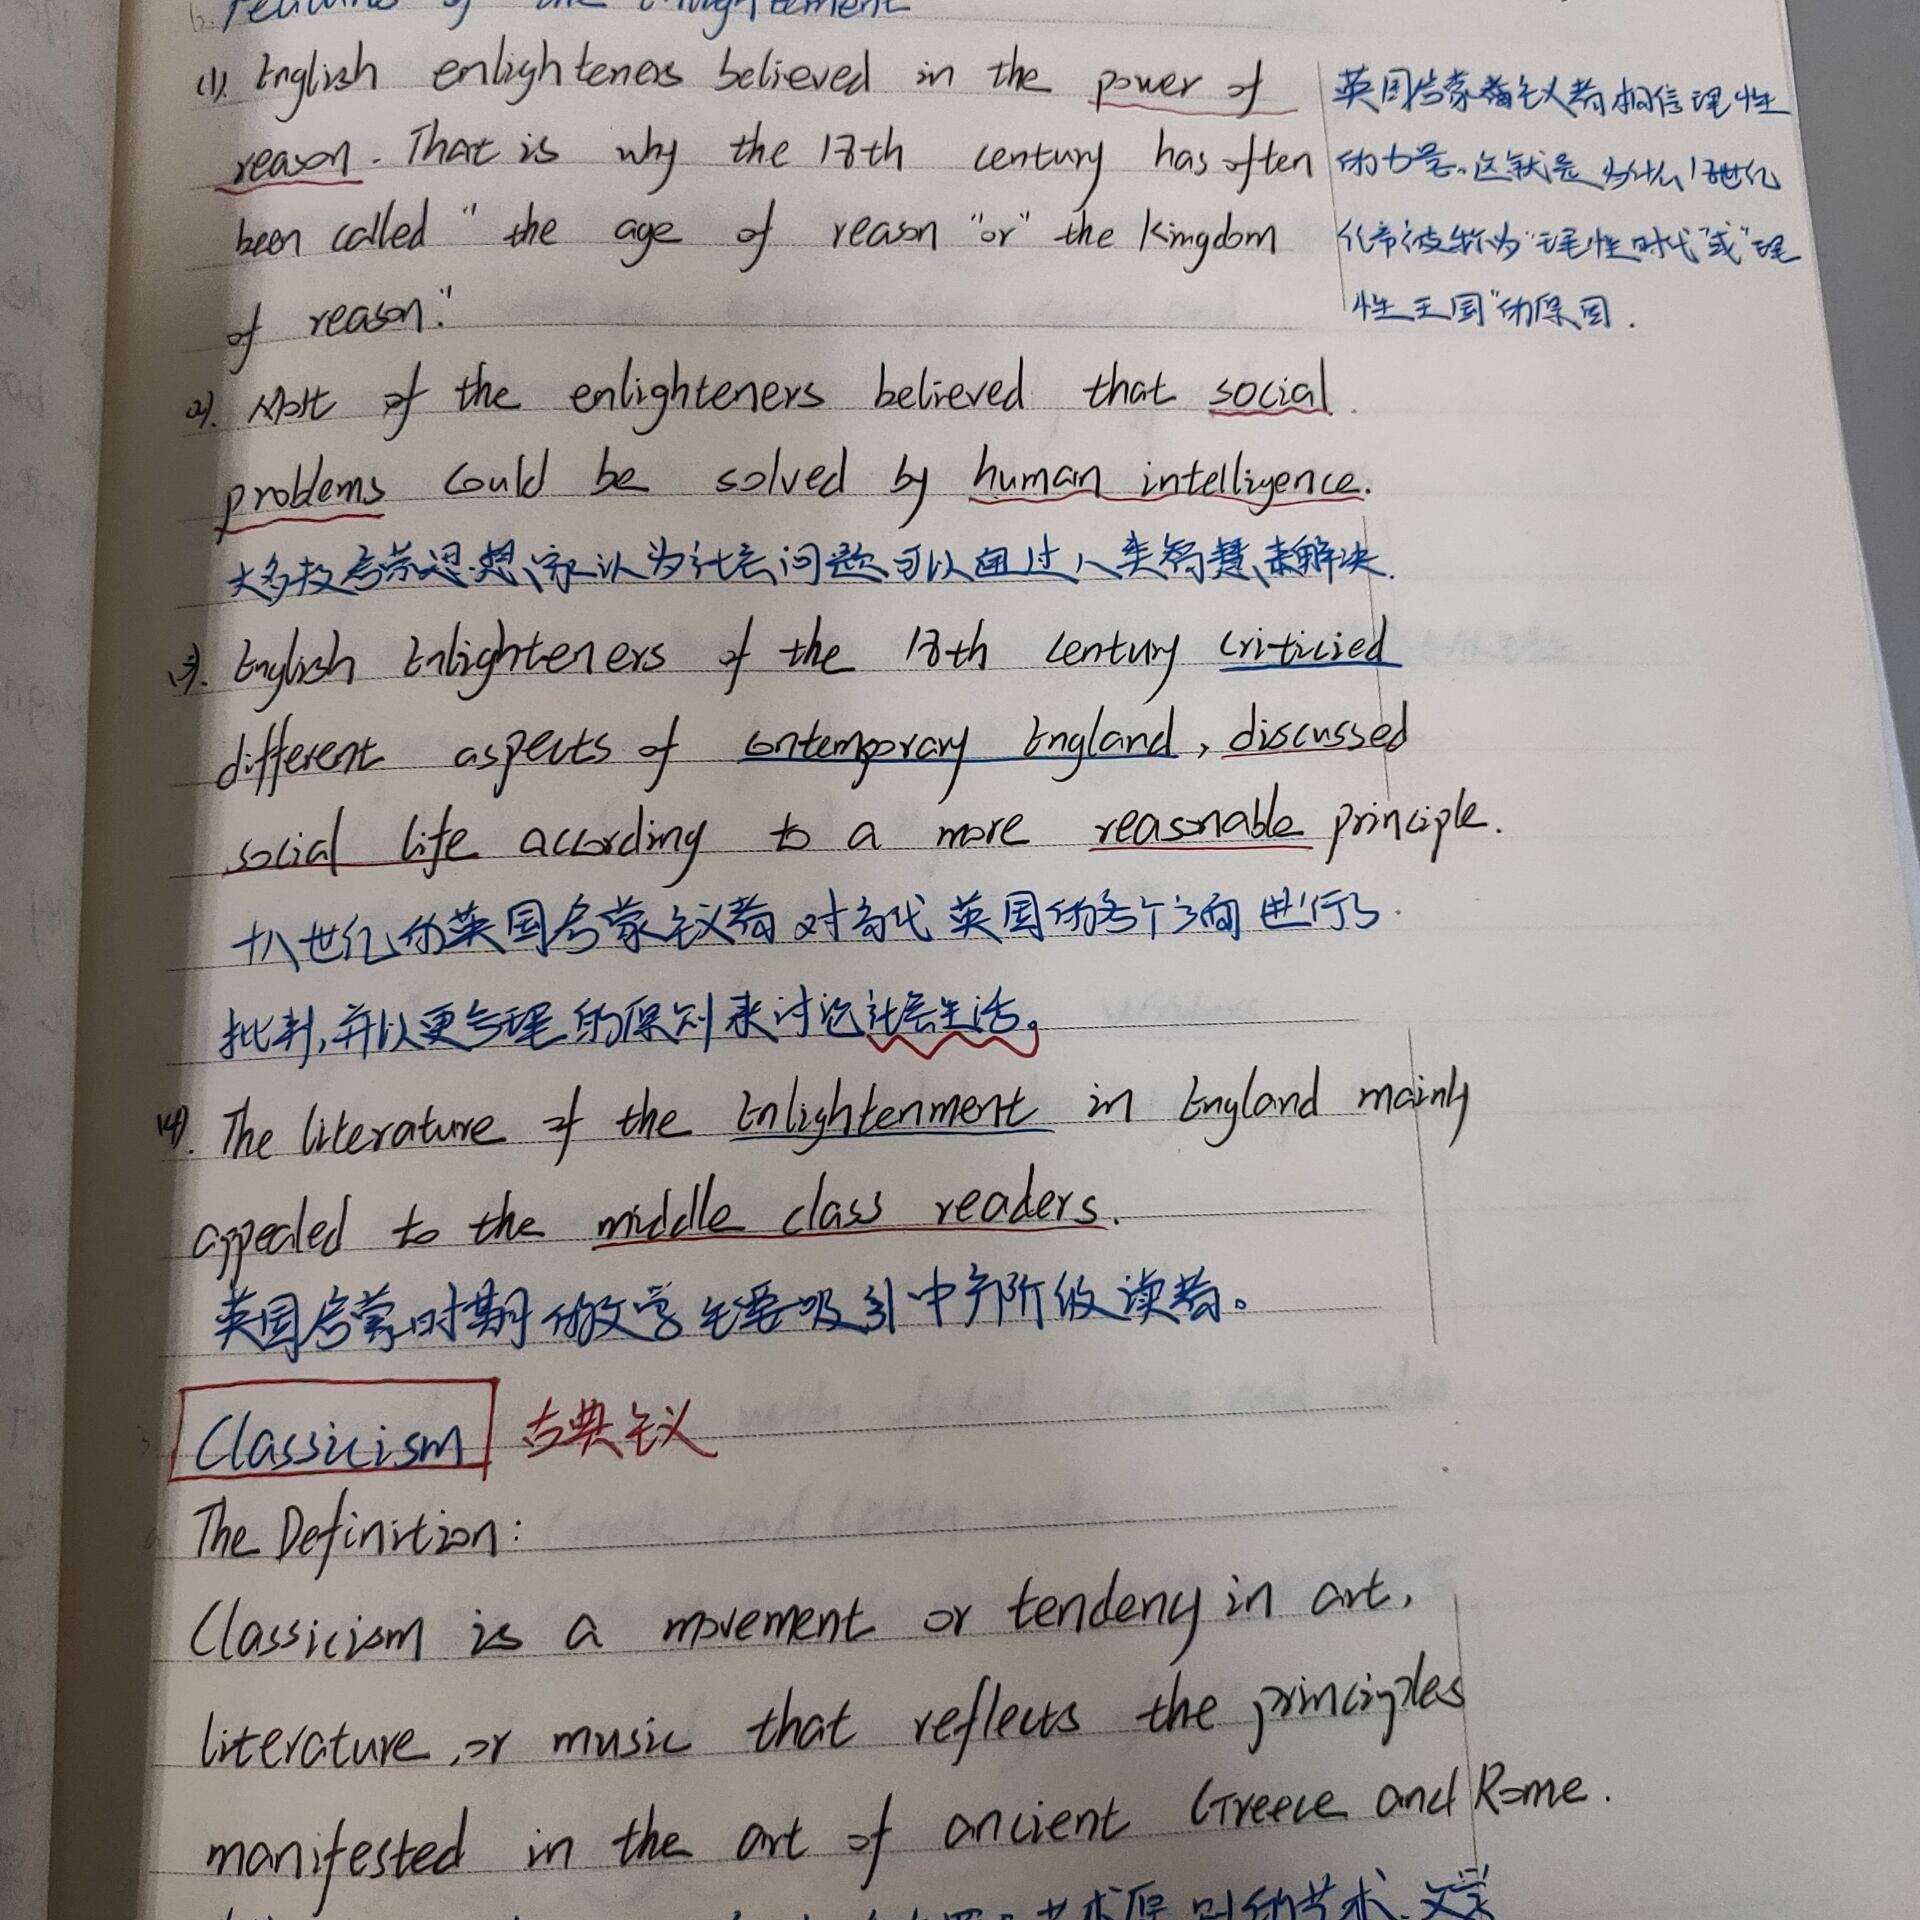 b. Features of the Enlightenment
(1). English enlighteners believed in the power of
reason. That is why the 18th century has often
been called "the age of reason" or "the Kingdom
of reason."
英国启蒙主义者相信理性
的力量。这就是为什么18世纪
经常被称为"理性时代"或"理
性王国"的原因.
(2). Most of the enlighteners believed that social
problems could be solved by human intelligence.
大多数启蒙思想家认为社会问题可以通过人类智慧来解决.
(3). English Enlighteners of the 18th century criticied
different aspects of contemporary England, discussed
social life according to a more reasonable principle.
十八世纪的英国启蒙主义者对当代英国的各个方面进行了
批判,并以更合理的原则来讨论社会生活。
(4). The literature of the Enlightenment in England mainly
appealed to the middle class readers.
英国启蒙时期的文学主要吸引中产阶级读者。
Classicism 古典主义
The Definition:
Classicism is a movement or tendency in art,
literature, or music that reflects the principles
manifested in the art of ancient Greece and Rome.
艺术原则的艺术、文学